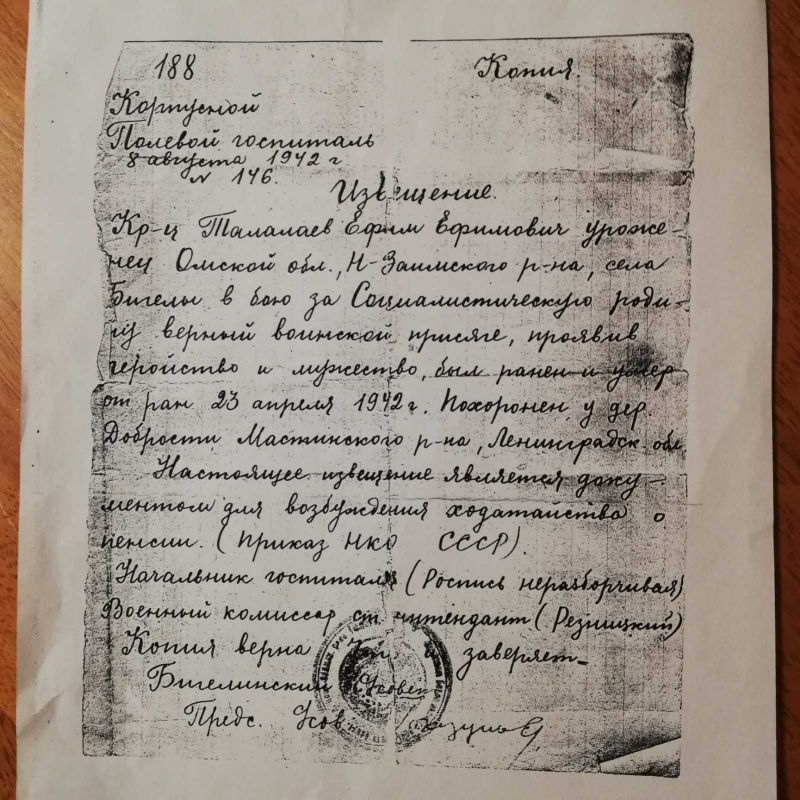 188 Копия.
Корпусной
Полевой госпиталь
8 августа 1942 г
N 146.
Извещение.
Кр-ц Талалаев Ефим Ефимович уроже-
нец Омской обл., Н-Заимского р-на, села
Бигелы в бою за Социалистическую роди-
ну верный воинской присяге, проявив
геройство и мужество, был ранен и умер
от ран 23 апреля 1942 г. Похоронен у дер.
Добрости Мастинского р-на, Ленинградск. обл
Настоящее извещение является доку-
ментом для возбуждения ходатайства о
пенсии. (Приказ НКО СССР).
Начальник госпиталя (Роспись неразборчивая)
Военный комиссар ст. интендант (Резницкий)
Копия верна заверяет
Бигелинский с/совет
Предс. с/сов